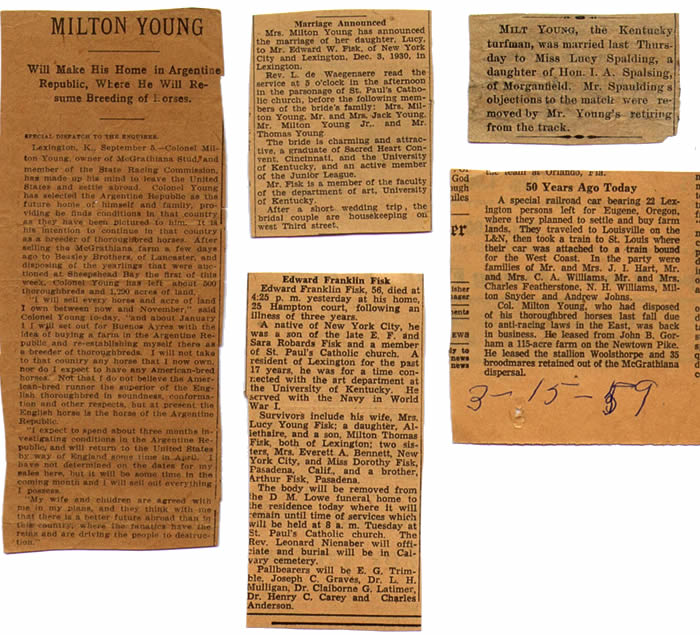 MILTON YOUNG
Will Make His Home in Argentine
Republic, Where He Will Re-
sume Breeding of Horses.
SPECIAL DISPATCH TO THE ENQUIRER.
Lexington, K., September 5.—Colonel Mil-
ton Young, owner of McGrathiana Stud, and
member of the State Racing Commission,
has made up his mind to leave the United
States and settle abroad. Colonel Young
has selected the Argentine Republic as the
future home of himself and family, pro-
viding he finds conditions in that country
as they have been pictured to him. It is
his intention to continue in that country
as a breeder of thoroughbred horses. After
selling the McGrathiana farm a few days
ago to Beasley Brothers, of Lancaster, and
disposing of the yearlings that were auc-
tioned at Sheepshead Bay the first of this
week, Colonel Young has left about 500
thoroughbreds and 1,290 acres of land.
"I will sell every horse and acre of land
I own between now and November," said
Colonel Young to-day, "and about January
1 I will set out for Buenos Ayres with the
idea of buying a farm in the Argentine Re-
public and re-establishing myself there as
a breeder of thoroughbreds. I will not take
to that country any horse that I now own,
nor do I expect to have any American-bred
horses. Not that I do not believe the Amer-
ican-bred runner the superior of the Eng-
lish thoroughbred in soundness, conforma-
tion and other respects, but at present the
English horse is the horse of the Argentine
Republic.
"I expect to spend about three months in-
vestigating conditions in the Argentine Re-
public, and will return to the United States
by way of England some time in April. I
have not determined on the dates for my
sales here, but it will be some time in the
coming month and I will sell out everything
I possess.
"My wife and children are agreed with
me in my plans, and they think with me
that there is a better future abroad than in
this country, where the fanatics have the
reins and are driving the people to destruc-
tion."
Marriage Announced
Mrs. Milton Young has announced
the marriage of her daughter, Lucy,
to Mr. Edward W. Fisk, of New York
City and Lexington, Dec. 3, 1930, in
Lexington.
Rev. L. de Waegenaere read the
service at 5 o'clock in the afternoon
in the parsonage of St. Paul's Catho-
lic church, before the following mem-
bers of the bride's family: Mrs. Mil-
ton Young, Mr. and Mrs. Jack Young,
Mr. Milton Young Jr., and Mr.
Thomas Young
The bride is charming and attrac-
tive, a graduate of Sacred Heart Con-
vent, Cincinnati, and the University
of Kentucky, and an active member
of the Junior League.
Mr. Fisk is a member of the faculty
of the department of art, University
of Kentucky.
After a short wedding trip, the
bridal couple are housekeeping on
west Third street.
Edward Franklin Fisk
Edward Franklin Fisk, 56, died at
4:25 p. m. yesterday at his home,
25 Hampton court, following an
illness of three years.
A native of New York City, he
was a son of the late E. F. and
Sara Robards Fisk and a member
of St. Paul's Catholic church. A
resident of Lexington for the past
17 years, he was for a time con-
nected with the art department at
the University of Kentucky. He
served with the Navy in World
War I.
Survivors include his wife, Mrs.
Lucy Young Fisk; a daughter, Al-
lethaire, and a son, Milton Thomas
Fisk, both of Lexington; two sis-
ters, Mrs. Everett A. Bennett, New
York City, and Miss Dorothy Fisk,
Pasadena, Calif., and a brother,
Arthur Fisk, Pasadena.
The body will be removed from
the D M. Lowe funeral home to
the residence today where it will
remain until time of services which
will be held at 8 a. m. Tuesday at
St. Paul's Catholic church. The
Rev. Leonard Nienaber will offi-
ciate and burial will be in Cal-
vary cemetery.
Pallbearers will be E. G. Trim-
ble, Joseph C. Graves, Dr. L. H.
Mulligan, Dr. Claiborne G. Latimer,
Dr. Henry C. Carey and Charles
Anderson.
MILT YOUNG, the Kentucky
turfman, was married last Thurs-
day to Miss Lucy Spalding, a
daughter of Hon. I. A. Spalsing,
of Morganfield. Mr. Spaulding's
objections to the match were re-
moved by Mr. Young's retiring
from the track.
the team at Orlando, Fla.
50 Years Ago Today
A special railroad car bearing 22 Lex-
ington persons left for Eugene, Oregon,
where they planned to settle and buy farm
lands. They traveled to Louisville on the
L&N, then took a train to St. Louis where
their car was attached to a train bound
for the West Coast. In the party were
families of Mr. and Mrs. J. I. Hart, Mr.
and Mrs. C. A. Williams, Mr. and Mrs.
Charles Featherstone, N. H. Williams, Mil-
ton Snyder and Andrew Johns.
Col. Milton Young, who had disposed
of his thoroughbred horses last fall due
to anti-racing laws in the East, was back
in business. He leased from John B. Gor-
ham a 115-acre farm on the Newtown Pike.
He leased the stallion Woolsthorpe and 35
broodmares retained out of the McGrathiana
dispersal.
3-15-59